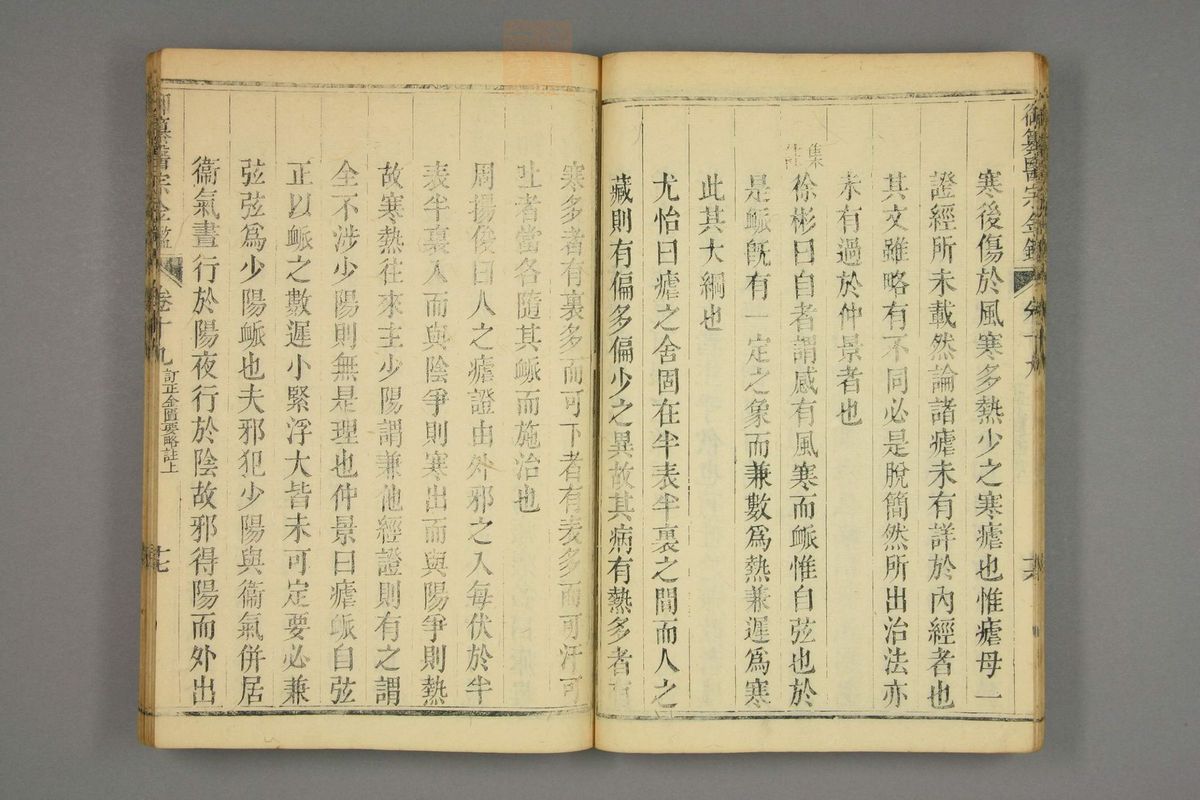 御纂醫宗金鑑 卷十九 十六
寒後傷於風寒多熱少之寒瘧也惟瘧母一
證經所未載然論諸瘧未有詳於內經者也
其文雖略有不同必是脫簡然所出治法亦
未有過於仲景者也
集註
徐彬曰自者謂感有風寒而䘑惟自弦也於
是䘑旣有一定之象而兼數爲熱兼遲爲寒
此其大綱也
尤怡曰瘧之舍固在半表半裏之間而人之
藏則有偏多偏少之異故其病有熱多者有
寒多者有裏多而可下者有表多而可汗可
吐者當各隨其䘑而施治也
周揚俊曰人之瘧證由外邪之入每伏於半
表半裏入而與陰爭則寒出而與陽爭則熱
故寒熱往來主少陽謂兼他經證則有之謂
全不涉少陽則無是理也仲景曰瘧䘑自弦
正以䘑之數遲小緊浮大皆未可定要必兼
弦弦爲少陽䘑也夫邪犯少陽與衞氣併居
衞氣晝行於陽夜行於陰故邪得陽而外出
御纂醫宗金鑑 卷十九 訂正金匱要略註上 十七